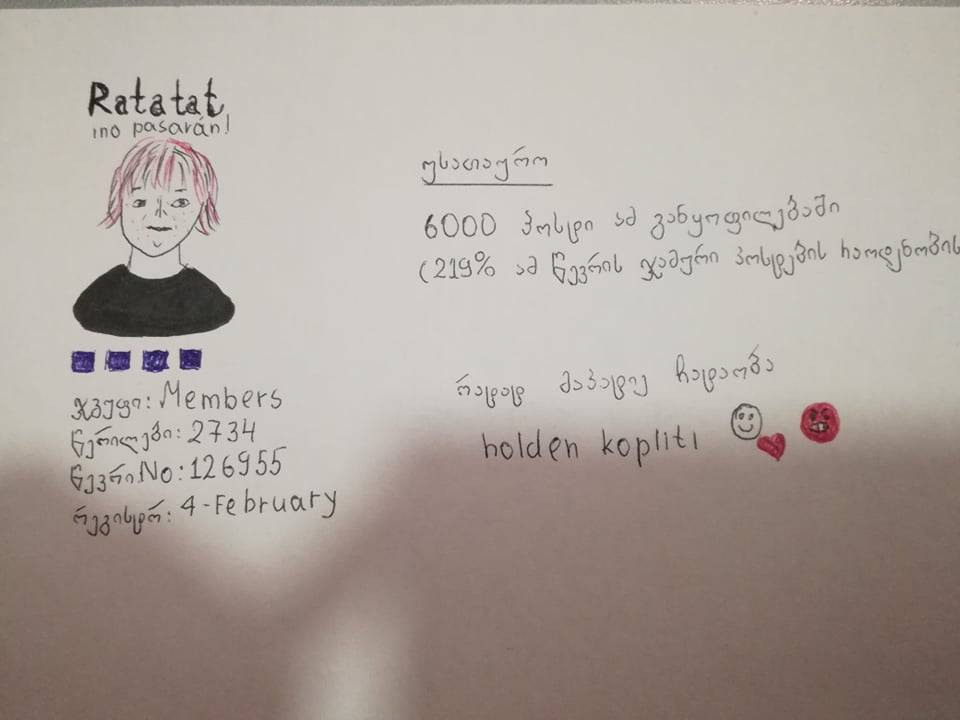 Ratatat
¡no pasarán!
ჯგუფი: Members
წერილები: 2734
წევრი No: 126955
რეგისტრ: 4-February
უსათაურო
6000 პოსტი ამ განყოფილებაში
(219% ამ წევრის ჯამური პოსტების რაოდენობის
რატატ მაგადიე ჩატაობა
holden kopliti